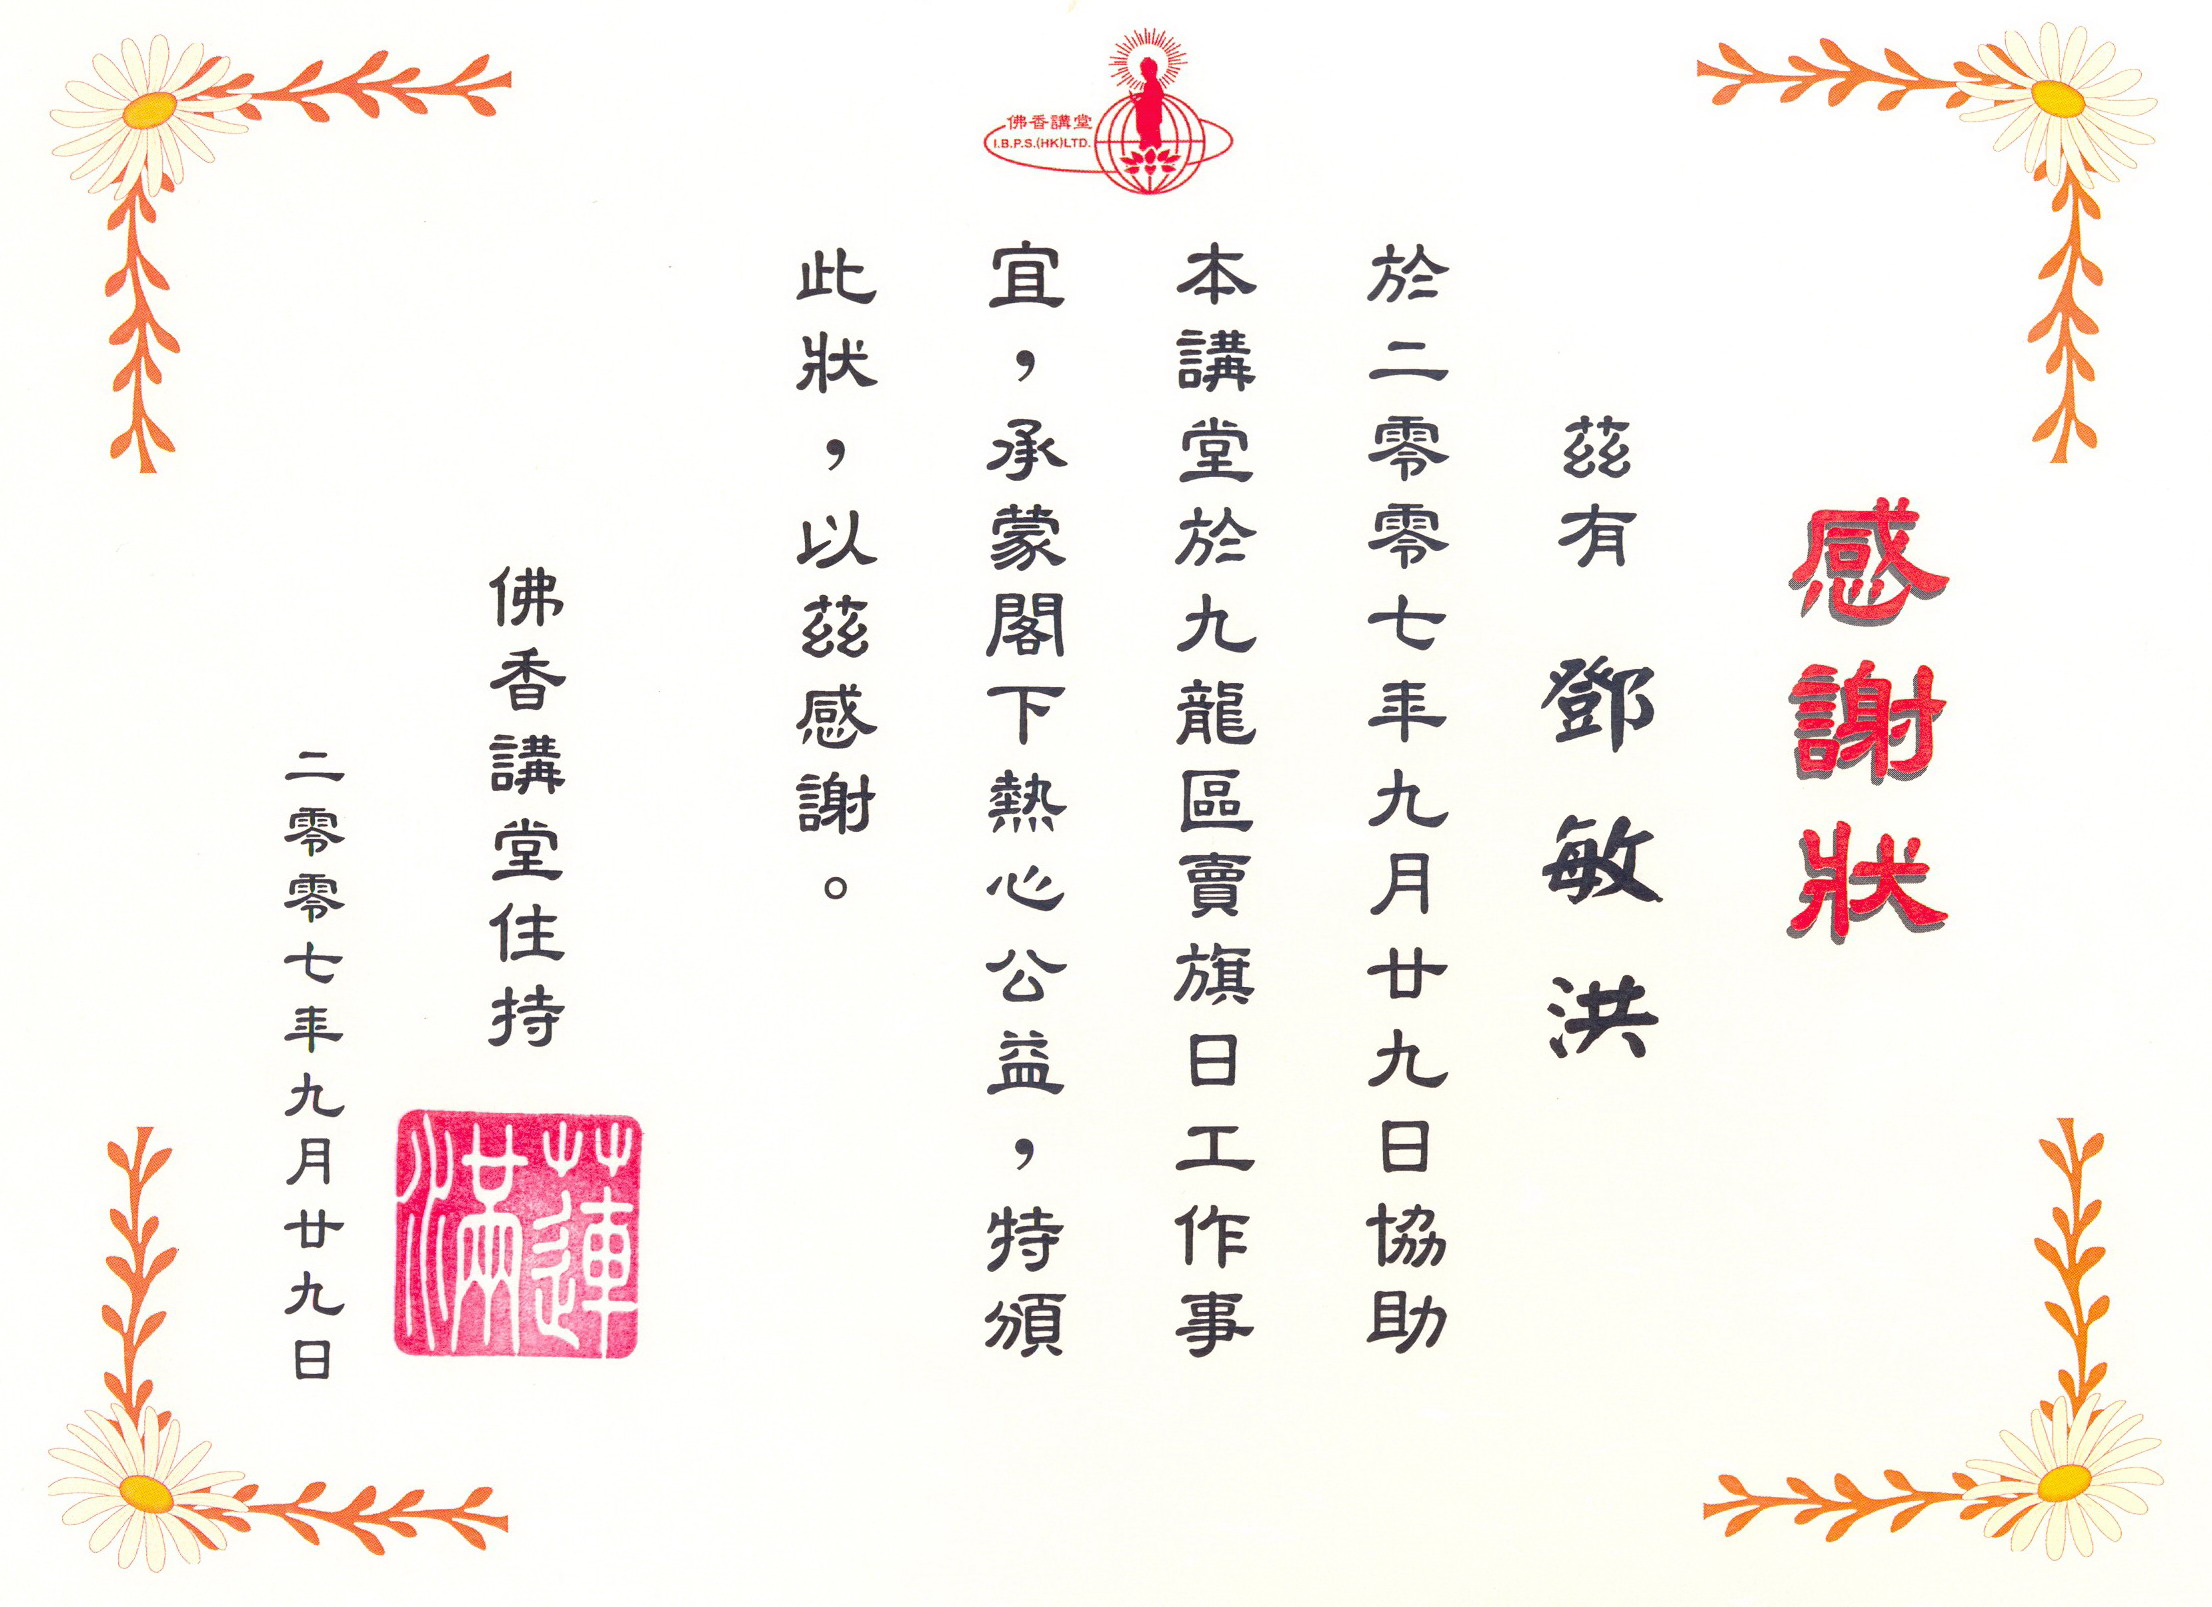 佛香講堂
I.B.P.S.(HK)LTD.
感謝狀
茲有 鄧敏洪
於二零零七年九月廿九日協助
本講堂於九龍區賣旗日工作事
宜，承蒙閣下熱心公益，特頒
此狀，以茲感謝。
佛香講堂住持
蓮滿
二零零七年九月廿九日